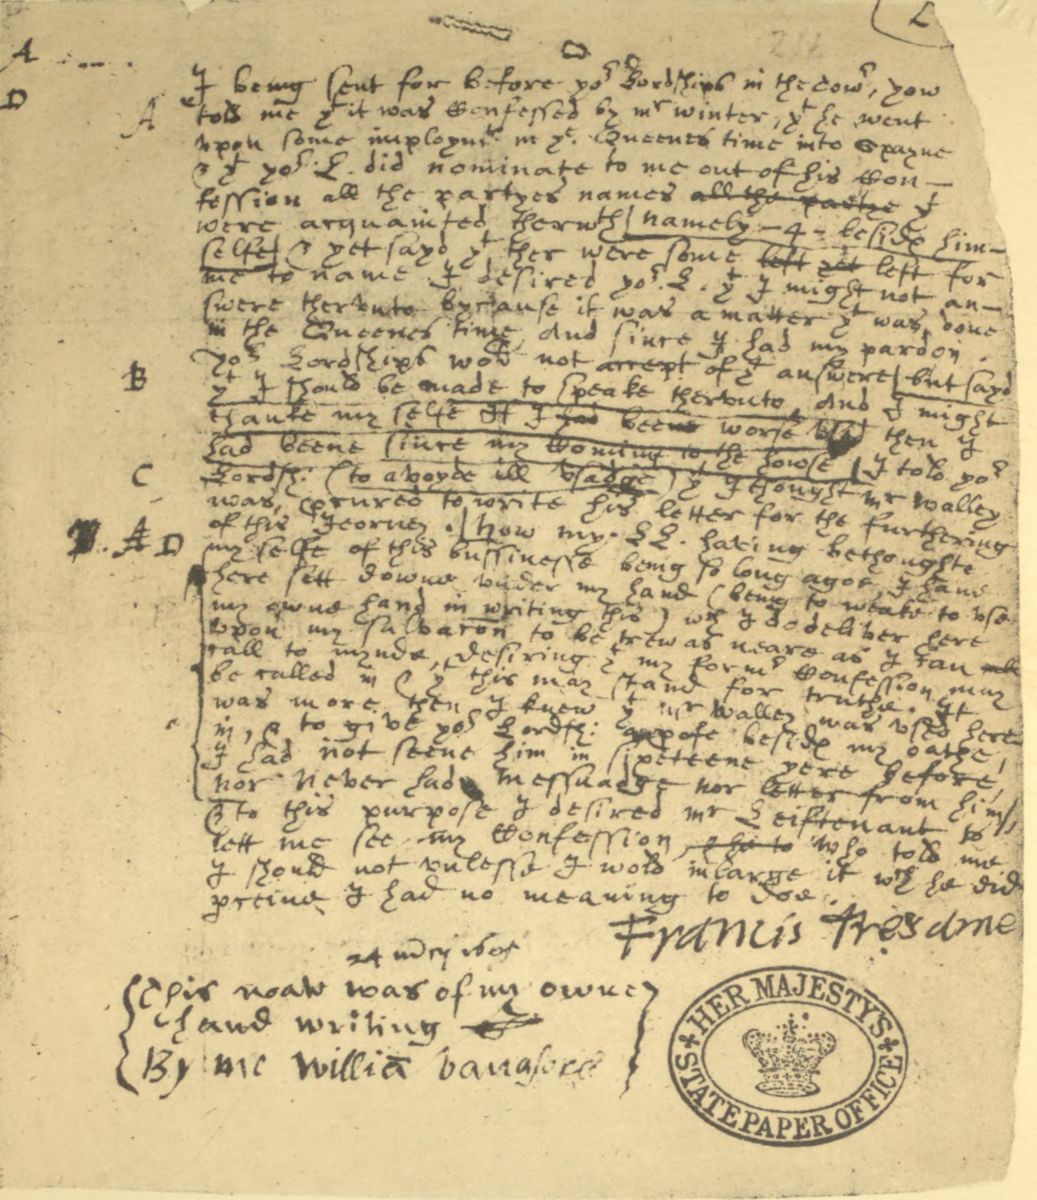 L
212
A
D
D
A
I being sent for before yor Lordships in the Towr, yow
told me yt it was Confessed by mr winter, yt he went
vpon some imploymt in ye. Queenes time into Spayne
& yt yor. L. did nominate to me out of his Con-
fession all the partyes names all the partye yt
were acquainted therwth namely - 4 - besids him-
selfe & yet sayd yt ther were some left yet left for
me to name I desired yor. L. yt I might not an-
swere thervnto bycause it was a matter yt was done
in the Queenes time, and since I had my pardon.
B
Yor Lordships wold not accept of yt answere but sayd
yt I should be made to speake thervnto, and I might
thanke my selfe if I had beene worse vsed then I
had beene since my Coming to the howse I told yor
C
Lordsh: (to avoyde ill vsadge) yt I thought mr Walley
was prcured to write his letter for the furthering
of this Jeorney. Now my. LL. having bethoughte
A D
my selfe of this bussinesse being so long agoe, I have
here sett downe vnder my hand (being to weake to vse
my owne hand in writing this) wch I do deliver here
vpon my salvacon to be trew as neare as I can
call to mynde, desiring yt my formr Confession may
be called in & yt this may stand for truthe. It
was more then I knew yt mr Walley was vsed here
in, & to give yor Lordsh: prpofe besids my oathe,
I had not seene him in spetene yere before,
nor never had messuadge nor letter from him,
& to this purpose I desired mr Leiftenant to
lett me see my Confession & he to who told me
I should not vnlesse I wold inlarge it wch he did
prceive I had no meaning to doe.
Francis Tresame
24 mcij 1605
This noate was of my owne
hand writing
By me William vavasore
HER MAJESTY'S
STATE PAPER OFFICE